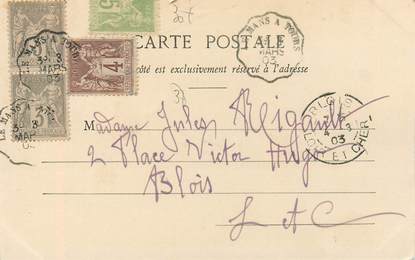 30f
5
LE MANS A TOURS
3
MARS
03
CARTE POSTALE
4
Ce côté est exclusivement réservé à l'adresse
3
MARS
03
M
Madame Jules Rigault
2 Place Victor Hugo
Blois
L et C
BLOIS
LOIR-ET-CHER
4
3
03